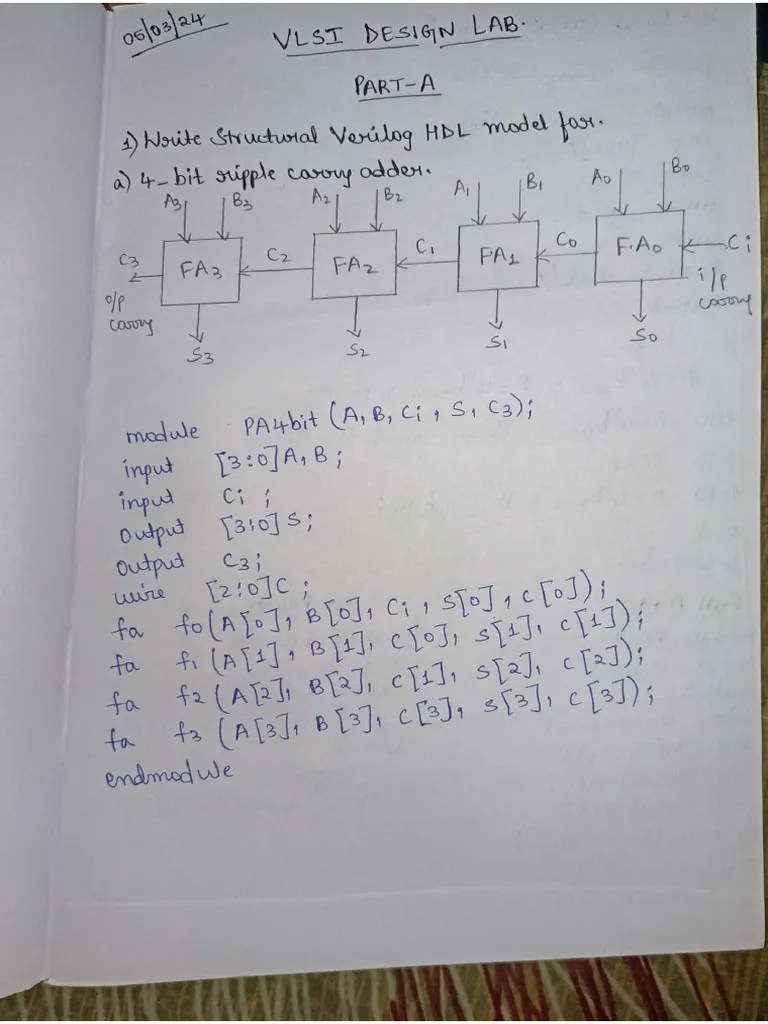 05/03/24
VLSI DESIGN LAB.
PART-A
1) Write Structural Verilog HDL model for.
a) 4-bit ripple carry adder.
A3 B3 A2 B2 A1 B1 A0 B0
C3 FA3 C2 FA2 C1 FA1 C0 F.A0 Ci
o/p carry
i/p carry
S3 S2 S1 S0
module PA4bit (A, B, Ci, S, C3);
input [3:0] A, B;
input Ci ;
output [3:0] S;
output C3;
wire [2:0] C ;
fa f0 (A[0], B[0], Ci, S[0], C[0]);
fa f1 (A[1], B[1], C[0], S[1], C[1]);
fa f2 (A[2], B[2], C[1], S[2], C[2]);
fa f3 (A[3], B[3], C[3], S[3], C[3]);
endmodule